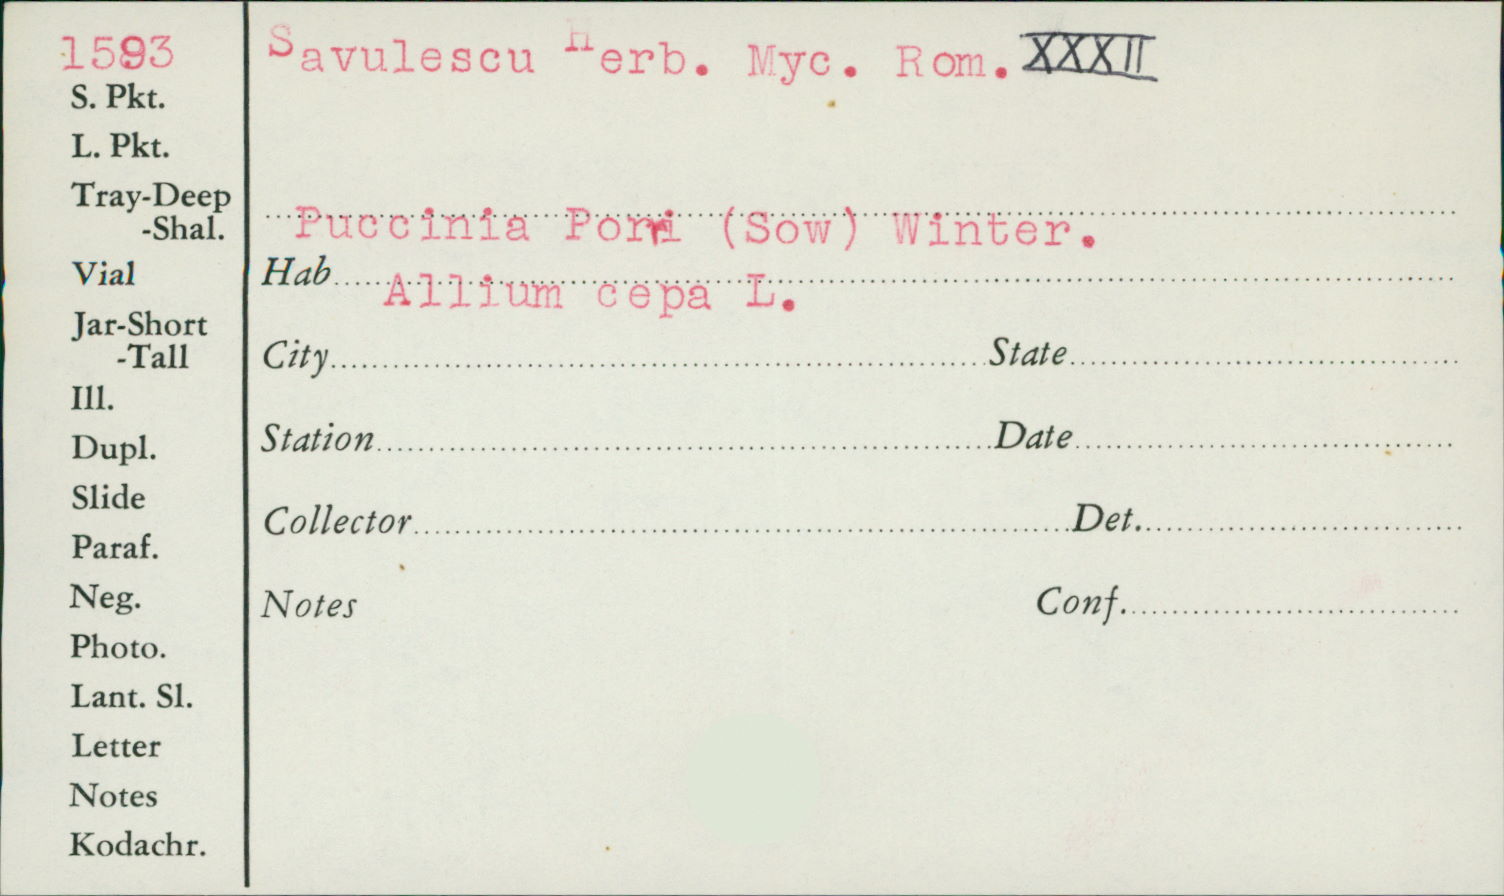 1593
Savulescu Herb. Myc. Rom. XXXII
S. Pkt.
L. Pkt.
Tray-Deep
-Shal.
Puccinia Porri (Sow) Winter.
Vial
Hab Allium cepa L.
Jar-Short
-Tall
City State
Ill.
Dupl.
Station Date
Slide
Collector Det.
Paraf.
Neg.
Notes Conf.
Photo.
Lant. Sl.
Letter
Notes
Kodachr.